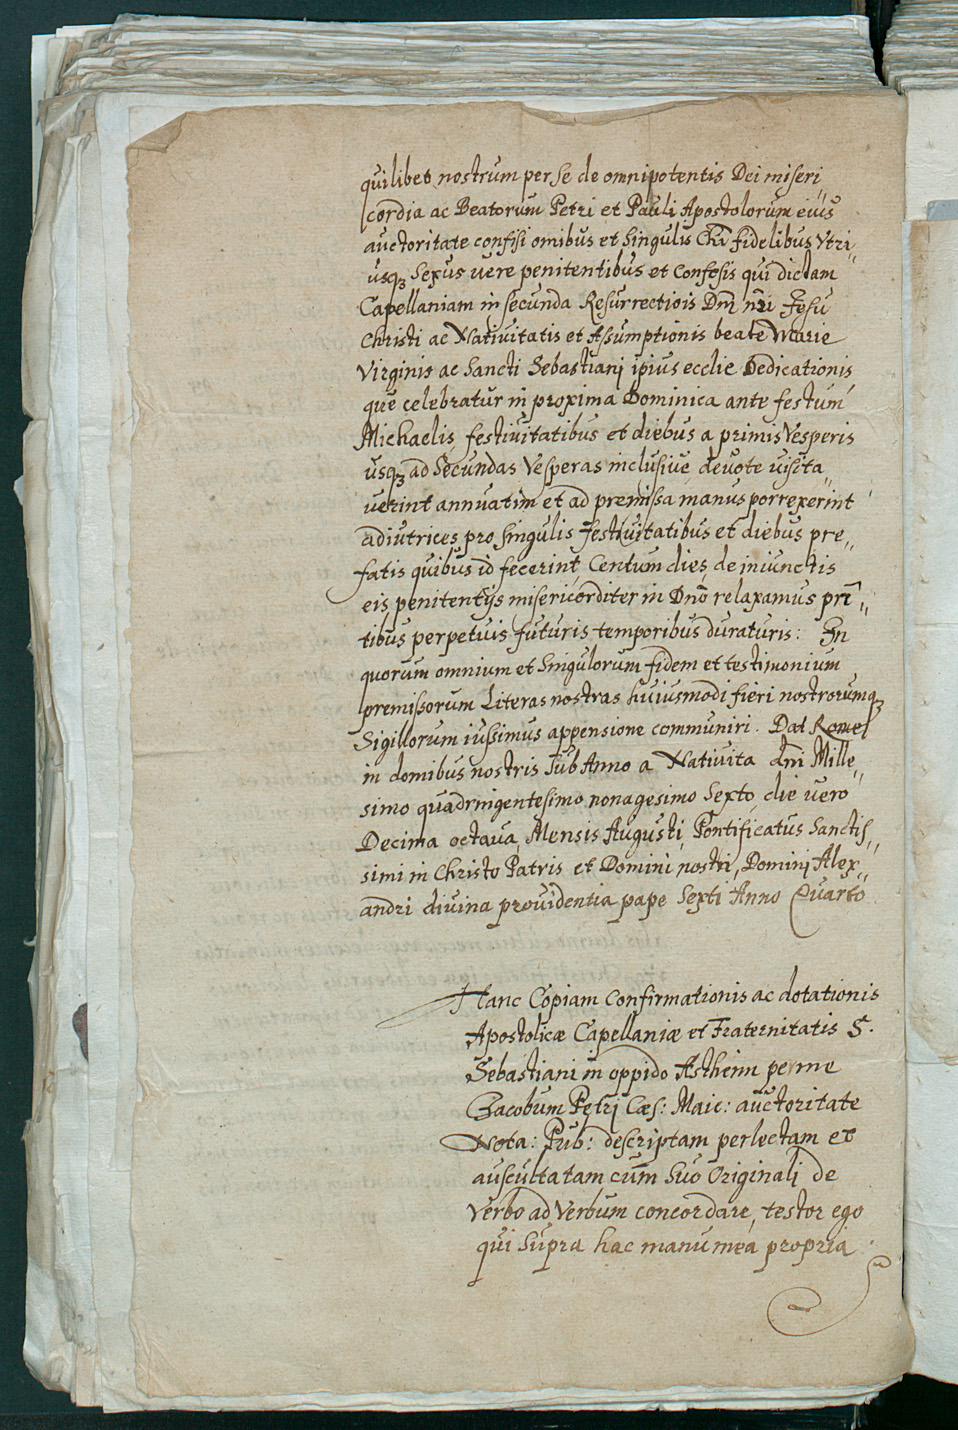 quilibet nostrum per se de omnipotentis Dei miseri„
cordia ac Beatorum Petri et Pauli Apostolorum eius
auctoritate confisi omibus et singulis Chri fidelibus Vtri„
usq₃ Sexus uere penitentibus et Confesis qui dictam
Capellaniam in secunda Resurrectiois Dnī nr̄i Jesu
Christi ac Natiuitatis et Assumptionis beate Marie
Virginis ac Sancti Sebastiani ipius ecclie Dedicationis
que celebratur in proxima Dominica ante festum
Michaelis festiuitatibus et diebus a primis Vesperis
usq₃ ad Secundas Vesperas inclusiue deuote uisita„
uerint annuatim et ad premissa manus porrexerint
adiutrices pro singulis festiuitatibus et diebus pre„
fatis quibus id fecerint Centum dies de iniunctis
eis penitentijs misericorditer in Dnō relaxamus prī„
tibus perpetuis futuris temporibus duraturis: In
quorum omnium et Singulorum fidem et testimonium
premissorum Literas nostras huiusmodi fieri nostrorumq₃
Sigillorum iussimus appensione communiri. Dat Rome
in domibus nostris Sub Anno a Natiuita dni Mille„
simo quadringentesimo nonagesimo Sexto die uero
Decima octaua Mensis Augusti, Pontificatus Sanctis„
simi in Christo Patris et Domini nostri, Domini Alex„
andri diuina prouidentia pape Sexti Anno Quarto
Hanc Copiam Confirmationis ac dotationis
Apostolicæ Capellaniæ et Fraternitatis S.
Sebastiani in oppido Astheim per me
Jacobum Petri Cæs: Maie: auctoritate
Nota: Pub: descriptam perlectam et
auscultatam cum suo Originali de
Verbo ad Verbum concordare, testor ego
qui supra hac manu mea propria